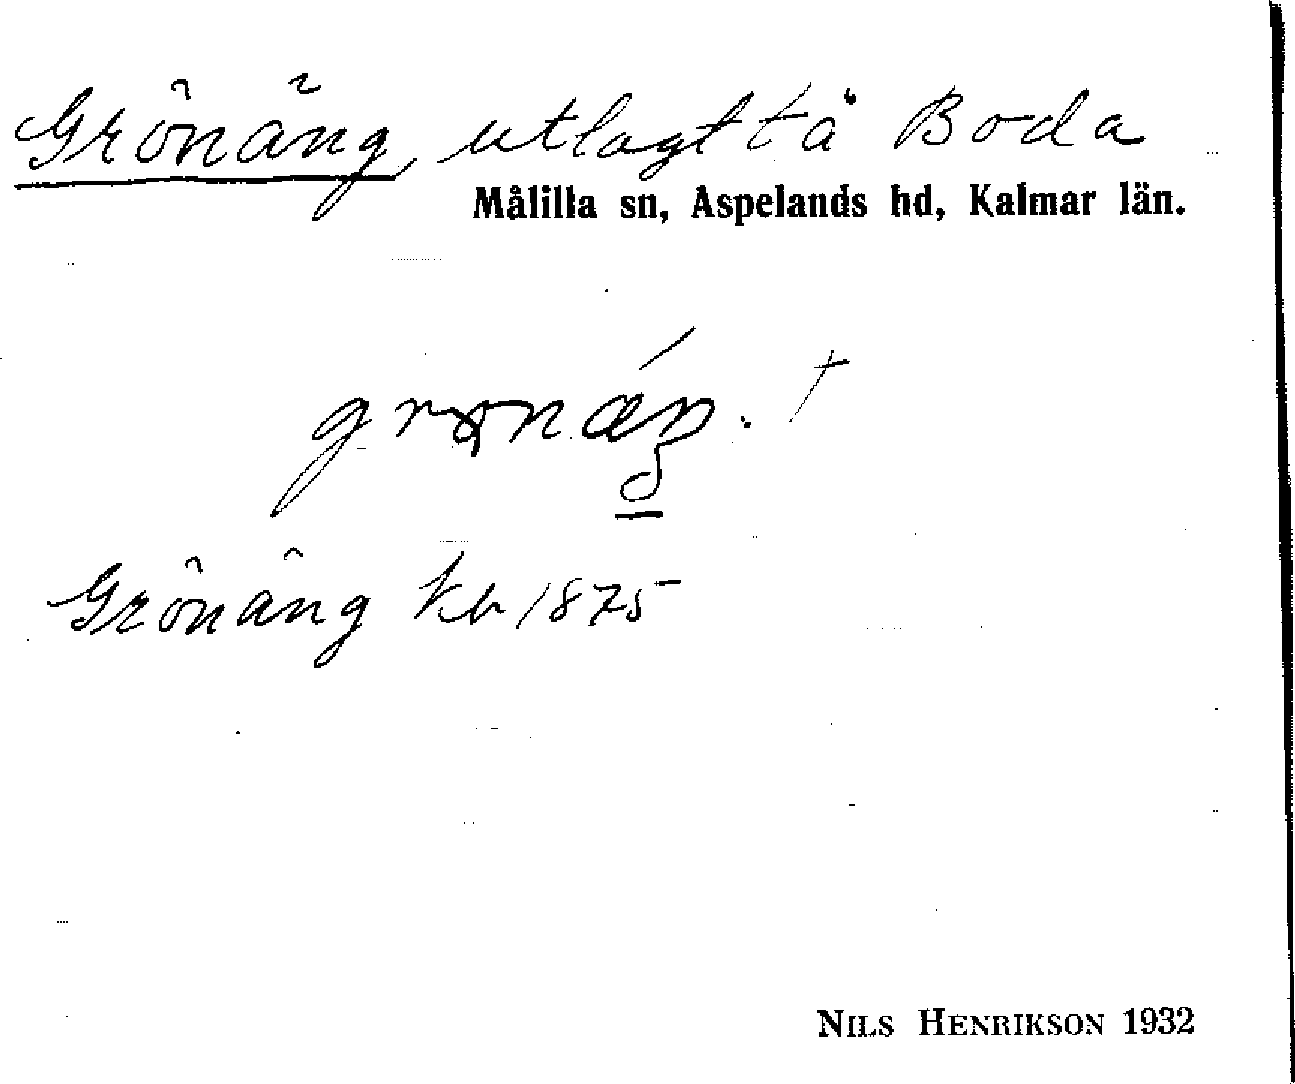 Grönäng, utlagt tä Boda
Målilla sn, Aspelands hd, Kalmar län.
Grönäng kb 1875
NILS HENRIKSON 1932